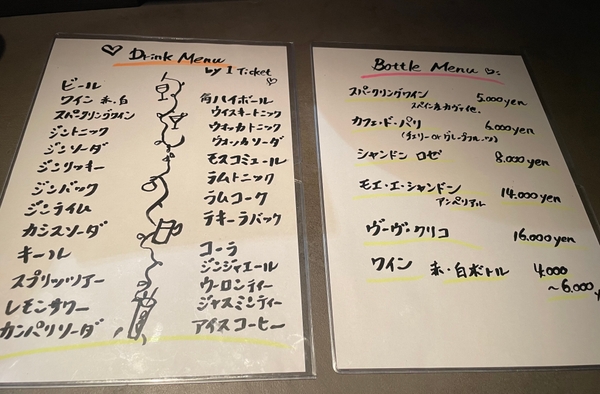 Drink Menu
by 1 Ticket
ビール
ワイン 赤、白
スパークリングワイン
ジントニック
ジンソーダ
ジンリッキー
ジンバック
ジンライム
カシスソーダ
キール
スプリッツァー
レモンサワー
カンパリソーダ
角ハイボール
ウイスキートニック
ウォッカトニック
ウォッカソーダ
モスコミュール
ラムトニック
ラムコーク
テキーラバック
コーラ
ジンジャエール
ウーロンティー
ジャスミンティー
アイスコーヒー
Bottle Menu
スパークリングワイン 5.000yen
スペイン産カヴァ他.
カフェ・ド・パリ 6.000yen
(チェリー or グレープフルーツ)
シャンドン ロゼ 8.000yen
モエ・エ・シャンドン 14.000yen
アンペリアル
ヴーヴ・クリコ 16.000yen
ワイン 赤・白ボトル 4.000
~6.000y